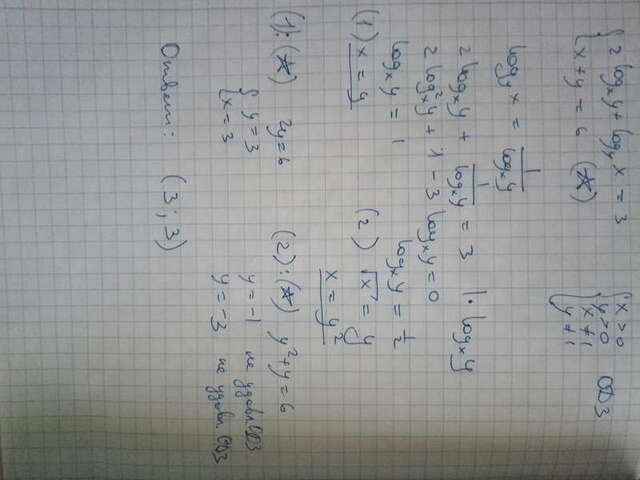 { 2 log_x y + log_y x = 3
{ x + y = 6 (☆)
{ x > 0
{ y > 0
{ x ≠ 1
{ y ≠ 1
ОДЗ
log_y x = 1/log_x y
2 log_x y + 1/log_x y = 3 | · log_x y
2 log²_x y + 1 - 3 log_x y = 0
(1) x = y
log_x y = 1
(2) log_x y = 1/2
√x = y
x = y²
(1): (☆) 2y = 6
{ y = 3
{ x = 3
(2): (☆) y² + y = 6
y = -1 не удовл ОДЗ
y = -3 не удовл. ОДЗ
Ответ: (3; 3)